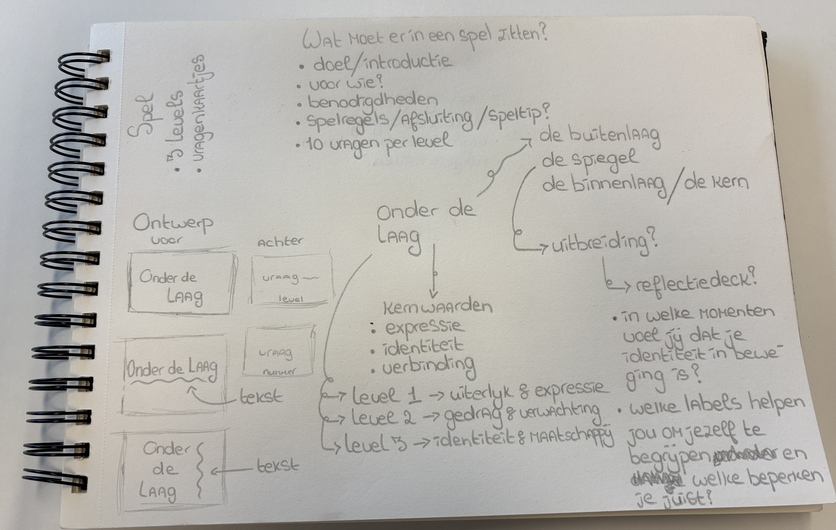 Spel
• 3 levels
• vragenkaartjes
Wat moet er in een spel zitten?
• doel/introductie
• voor wie?
• benodigdheden
• spelregels/afsluiting/speltip?
• 10 vragen per level
de buitenlaag
de spiegel
de binnenlaag/de kern
uitbreiding?
reflectiedeck?
• in welke momenten
voel jij dat je
identiteit in bewe-
ging is?
• welke labels helpen
jou om jezelf te
begrijpen en
welke beperken
je juist?
Onder de
laag
kernwaarden
• expressie
• identiteit
• verbinding
level 1 → uiterlyk & expressie
level 2 → gedrag & verwachting
level 3 → identiteit & maatschappy
Ontwerp
voor
achter
Onder de
laag
vraag
level
Onder de laag
vraag
nummer
tekst
Onder
de
laag
tekst